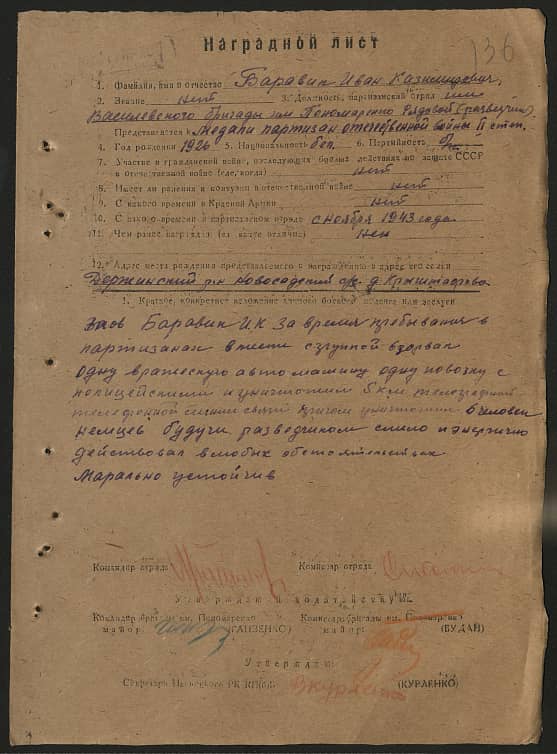 136
Наградной лист
1. Фамилия, имя и отчество Баравик Иван Казимирович
2. Звание нет 3. Должность, партизанский отряд им
Василевского бригады им Пономаренко Рядовой (разведчик)
Представляется к Медали партизан отечественной войны II степ.
4. Год рождения 1926 5. Национальность бел. 6. Партийность
7. Участие в гражданской войне, последующих боевых действиях по защите СССР
в отечественной войне (где, когда) нет
8. Имеет ли ранения и контузии в отечественной войне нет
9. С какого времени в Красной Армии нет
10. С какого времени в партизанском отряде с ноября 1943 года
11. Чем ранее награжден (за какие отличия) нет
12. Адрес места рождения представляемого к награждению и адрес его семьи
Держинский р-н Новосадский с/с д.
1. Краткое, конкретное изложение личного боевого подвига или заслуги
Тов Баравик И К за время пребывания в
партизанах вместе с группой взорвал
одну вражескую автомашину одну повозку с
полицейскими и уничтожил 5 км
телефонной линии связи причем уничтожил 6 человек
немцев будучи разведчиком смело и энергично
действовал в любых обстоятельствах
Марально устойчив
Командир отряда Комиссар отряда
Утверждаю и ходатайствую:
Командир бригады им. Пономаренко Комиссар бригады им. Пономаренко
майор (ГАНЗЕНКО) майор (БУДАЙ)
Утверждаю:
Секретарь РК КП(б)Б (КУРЛЕНКО)